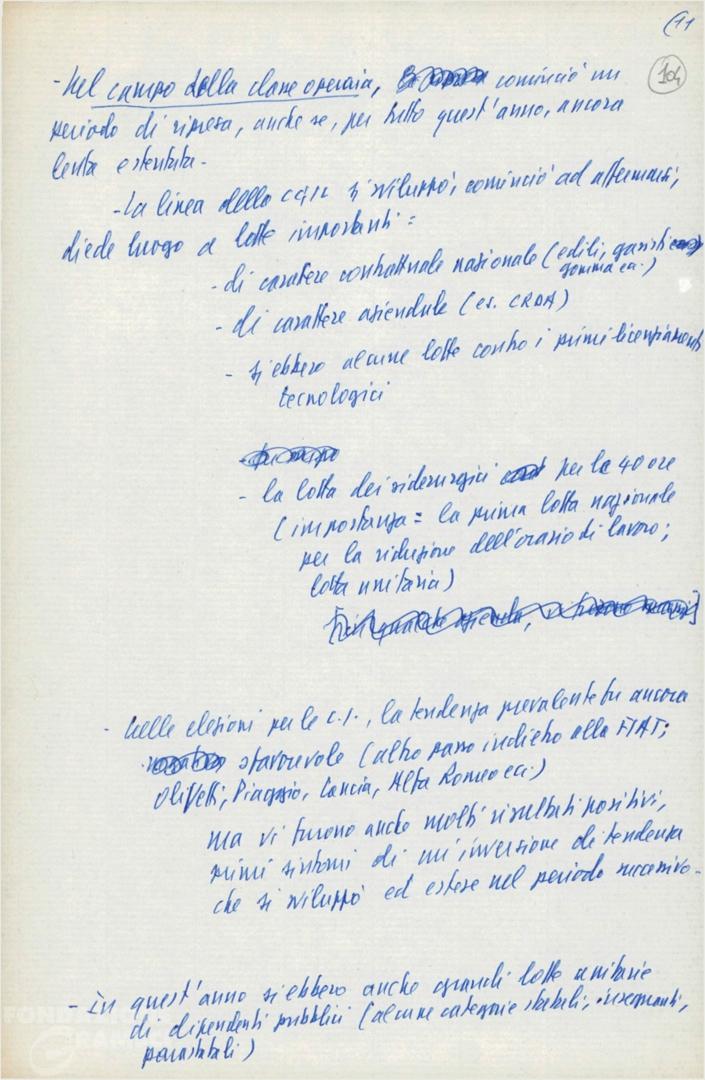 (11
104
- Nel campo della classe operaia, cominciò un
periodo di ripresa, anche se, per tutto quest'anno, ancora
lenta e stentata -
- La linea della CGIL si sviluppò, cominciò ad affermarsi,
diede luogo a lotte importanti:
- di carattere contrattuale nazionale (edili, gasisti
gomma ecc.)
- di carattere aziendale (es. CRDA)
- si ebbero alcune lotte contro i primi licenziamenti
tecnologici
- la lotta dei siderurgici per le 40 ore
(importanza = la prima lotta nazionale
per la riduzione dell'orario di lavoro;
lotta unitaria)
- Nelle elezioni per le C.I., la tendenza prevalente fu ancora
sfavorevole (altro passo indietro alla FIAT;
Olivetti, Piaggio, Lancia, Alfa Romeo ecc.)
ma vi furono anche molti risultati positivi,
primi sintomi di un'inversione di tendenza
che si sviluppò ed estese nel periodo successivo -
- in quest'anno si ebbero anche grandi lotte unitarie
di dipendenti pubblici (alcune categorie statali, insegnanti,
parastatali)
FONDAZIONE
GRAMSCI